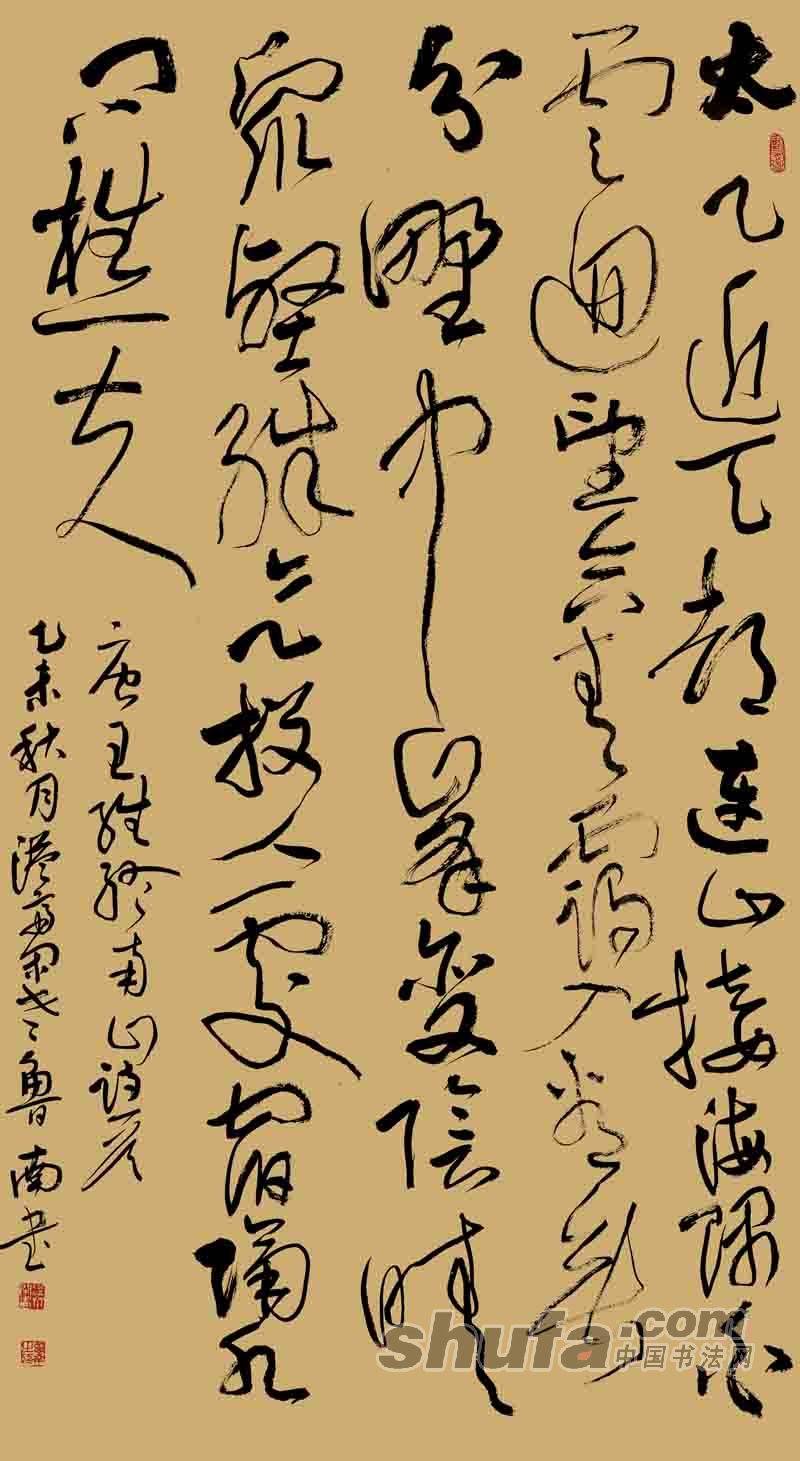 太乙近天都連山接海隅白
雲迴望合青靄入看無
分野中峰變陰晴
衆壑殊欲投人處宿隔水
問樵夫
唐王維終南山詩
乙未秋月魯南書
shufa.com
中国书法网